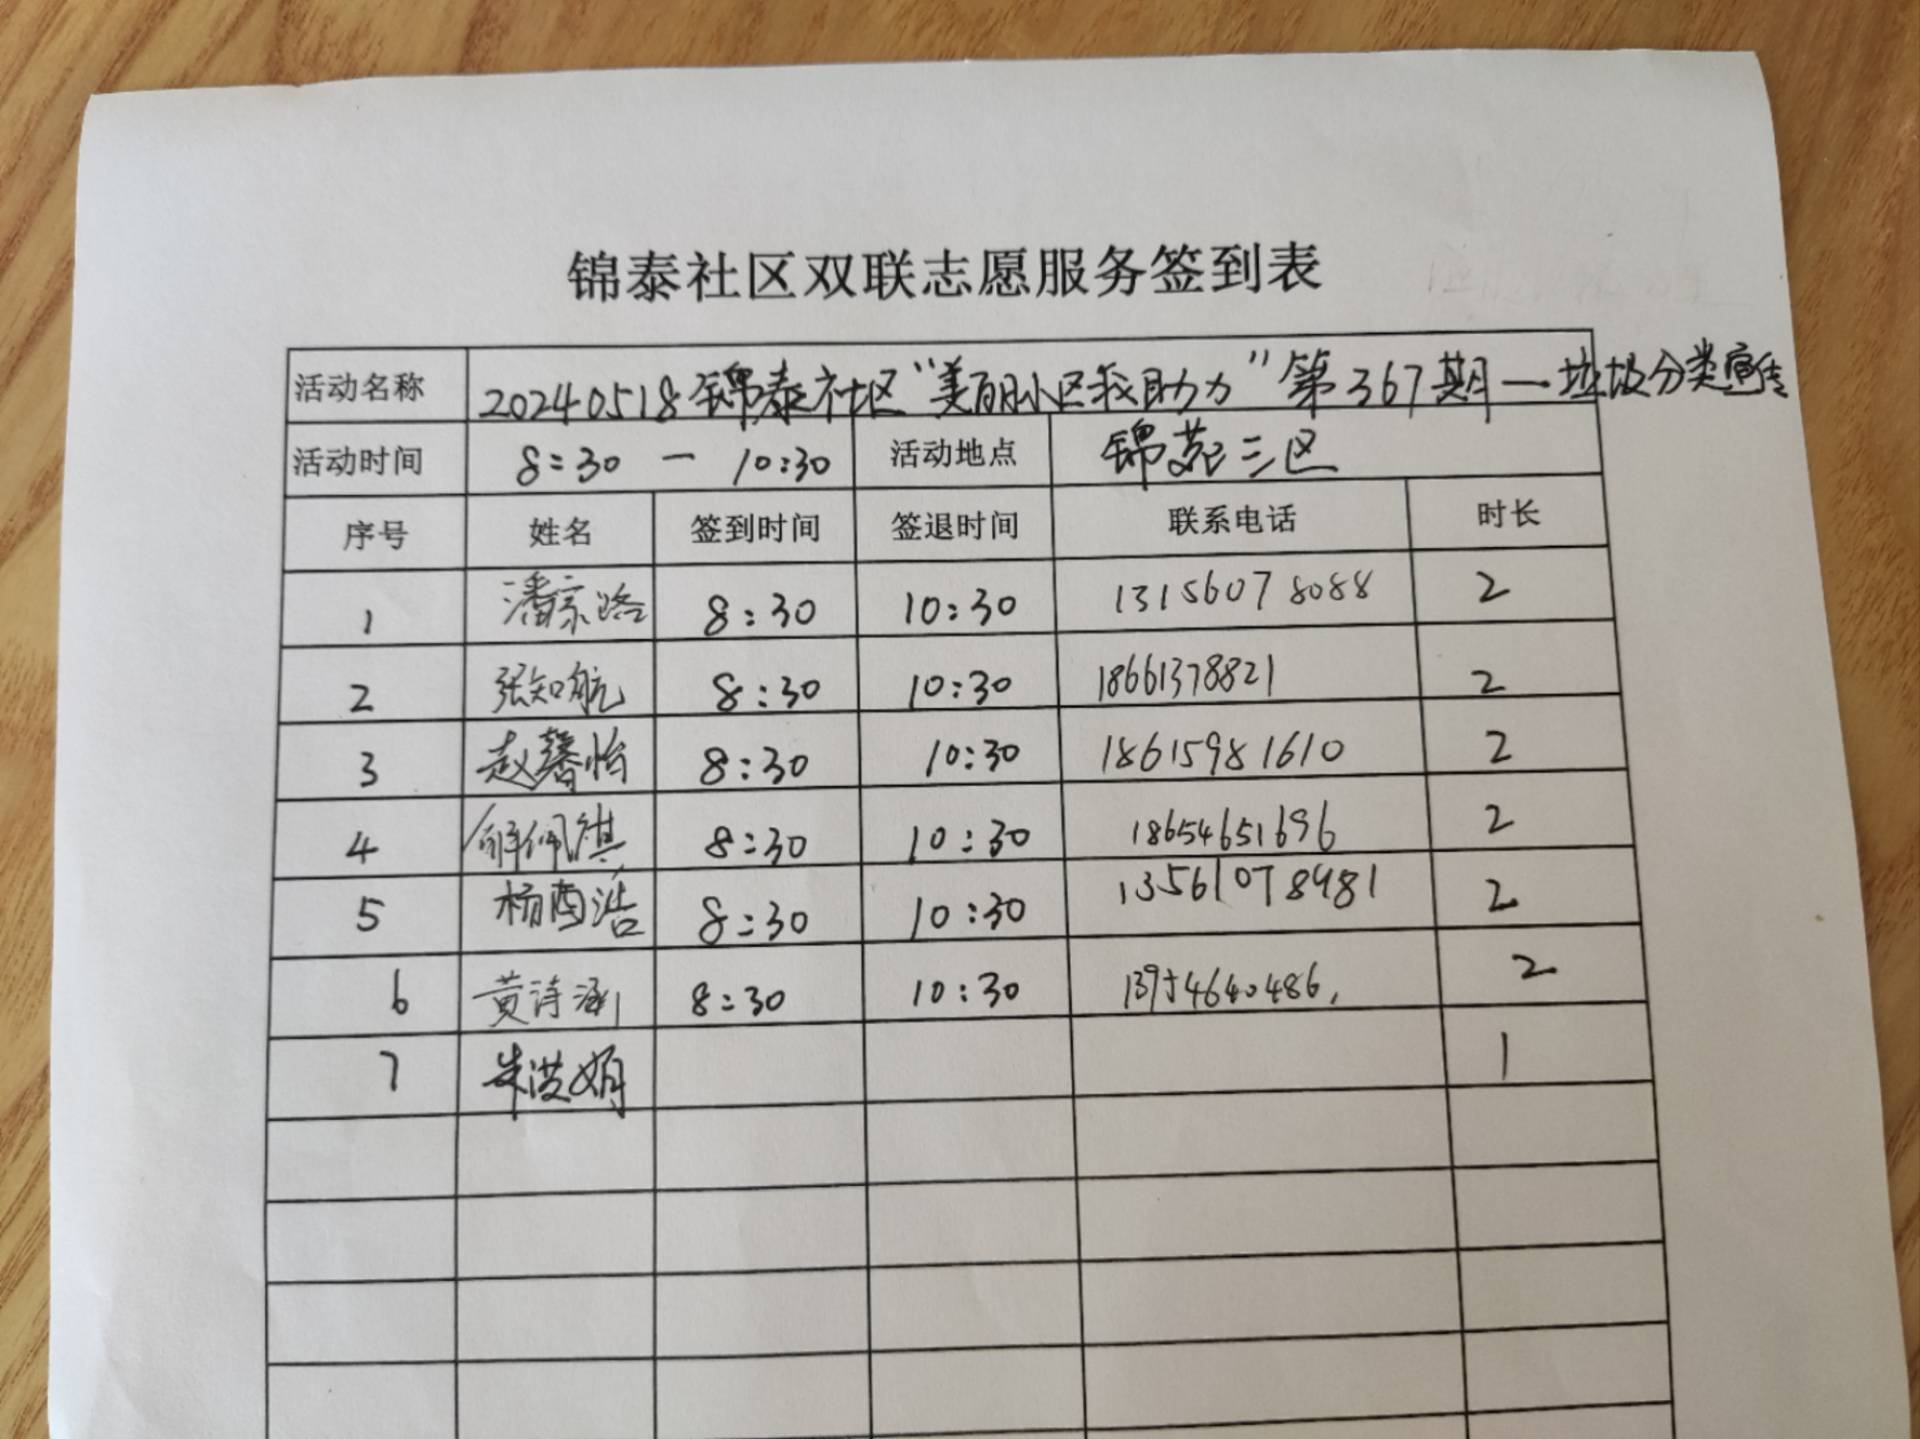 锦泰社区双联志愿服务签到表
活动名称 20240518锦泰社区“美丽小区我助力”第367期一垃圾分类宣传
活动时间 8:30 一 10:30 活动地点 锦苑三区
序号 姓名 签到时间 签退时间 联系电话 时长
1 潘宗路 8:30 10:30 13156078088 2
2 张知航 8:30 10:30 18661378821 2
3 赵馨怡 8:30 10:30 18615981610 2
4 解佩祺 8:30 10:30 18654651696 2
5 杨酉浩 8:30 10:30 13561078981 2
6 黄诗涵 8:30 10:30 13954640486, 2
7 朱 娟 1